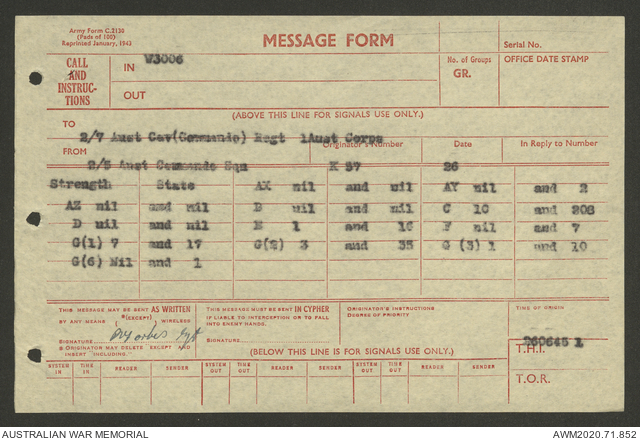 Army Form C.2130
(Pads of 100)
Reprinted January, 1943
MESSAGE FORM
Serial No.
CALL AND INSTRUCTIONS
IN W3006
OUT
No. of Groups
GR.
OFFICE DATE STAMP
(ABOVE THIS LINE FOR SIGNALS USE ONLY.)
TO 2/7 Aust Cav(Commando) Regt 1Aust Corps
FROM 2/5 Aust Commando Sqn
Originator's Number K 57
Date 26
In Reply to Number
Strength State AX nil and nil AY nil and 2
AZ nil and nil B nil and nil C 10 and 208
D nil and nil E 1 and 16 F nil and 7
G(1) 7 and 17 G(2) 3 and 35 G (3) 1 and 10
G(6) Nil and 1
THIS MESSAGE MAY BE SENT AS WRITTEN
BY ANY MEANS (EXCEPT) WIRELESS
SIGNATURE
& ORIGINATOR MAY DELETE EXCEPT AND INSERT INCLUDING.
THIS MESSAGE MUST BE SENT IN CYPHER
IF LIABLE TO INTERCEPTION OR TO FALL
INTO ENEMY HANDS.
SIGNATURE
ORIGINATOR'S INSTRUCTIONS
DEGREE OF PRIORITY
TIME OF ORIGIN
260645 1
T.H.I.
T.O.R.
(BELOW THIS LINE IS FOR SIGNALS USE ONLY.)
SYSTEM IN TIME IN READER SENDER SYSTEM OUT TIME OUT READER SENDER SYSTEM OUT TIME OUT READER SENDER
AUSTRALIAN WAR MEMORIAL
AWM2020.71.852